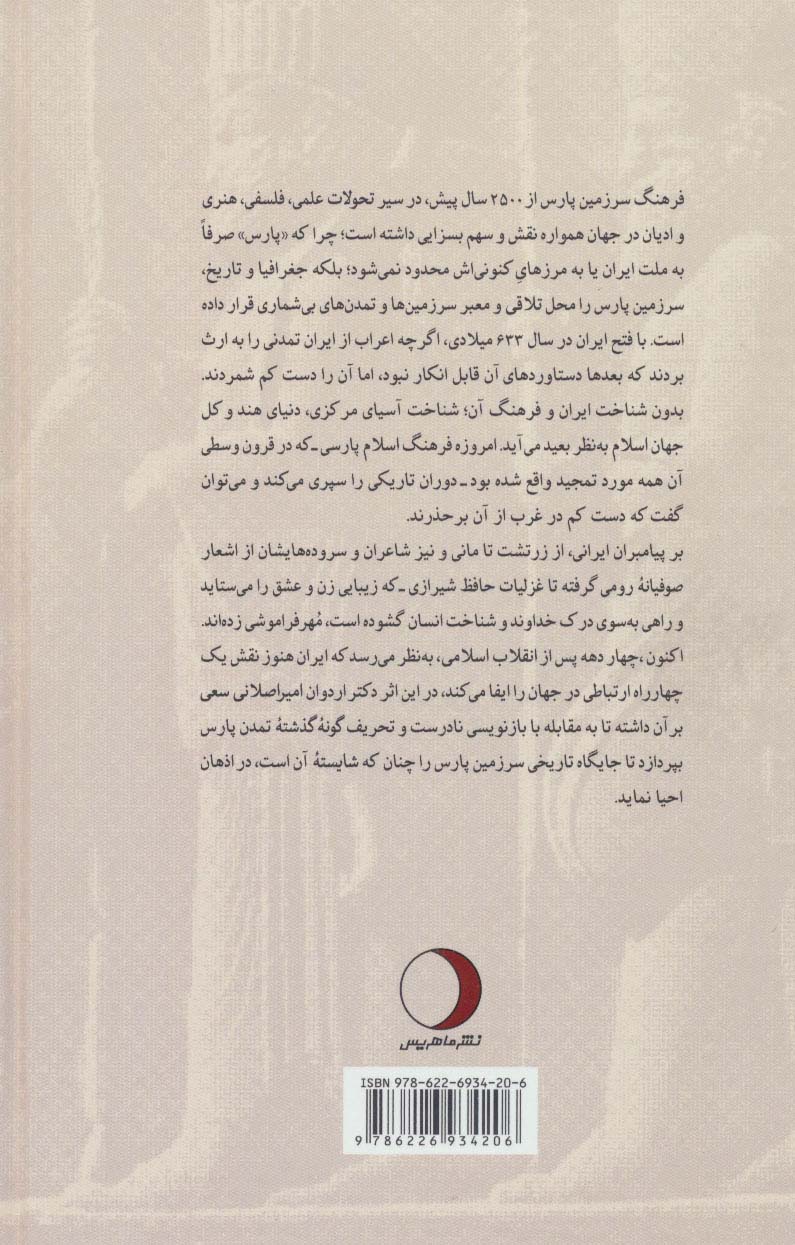 فرهنگ سرزمین پارس از ۲۵۰۰ سال پیش، در سیر تحولات علمی، فلسفی، هنری
و ادیان در جهان همواره نقش و سهم بسزایی داشته است؛ چرا که «پارس» صرفاً
به ملت ایران یا به مرزهایِ کنونی‌اش محدود نمی‌شود؛ بلکه جغرافیا و تاریخ،
سرزمین پارس را محل تلاقی و معبر سرزمین‌ها و تمدن‌های بی‌شماری قرار داده
است. با فتح ایران در سال ۶۳۳ میلادی، اگرچه اعراب از ایران تمدنی را به ارث
بردند که بعدها دستاوردهای آن قابل انکار نبود، اما آن را دست کم شمردند.
بدون شناخت ایران و فرهنگ آن؛ شناخت آسیای مرکزی، دنیای هند و کل
جهان اسلام به‌نظر بعید می‌آید. امروزه فرهنگ اسلام پارسی ـ که در قرون وسطی
آن همه مورد تمجید واقع شده بود ـ دوران تاریکی را سپری می‌کند و می‌توان
گفت که دست کم در غرب از آن برحذرند.
بر پیامبران ایرانی، از زرتشت تا مانی و نیز شاعران و سروده‌هایشان از اشعار
صوفیانهٔ رومی گرفته تا غزلیات حافظ شیرازی ـ که زیبایی زن و عشق را می‌ستاید
و راهی به‌سوی درک خداوند و شناخت انسان گشوده است، مُهر فراموشی زده‌اند.
اکنون ،چهار دهه پس از انقلاب اسلامی، به‌نظر می‌رسد که ایران هنوز نقش یک
چهارراه ارتباطی در جهان را ایفا می‌کند، در این اثر دکتر اردوان امیراصلانی سعی
بر آن داشته تا به مقابله با بازنویسی نادرست و تحریف گونهٔ گذشتهٔ تمدن پارس
بپردازد تا جایگاه تاریخی سرزمین پارس را چنان که شایستهٔ آن است، در اذهان
احیا نماید.
نشر ماهریس
ISBN 978-622-6934-20-6
9 786226 934206